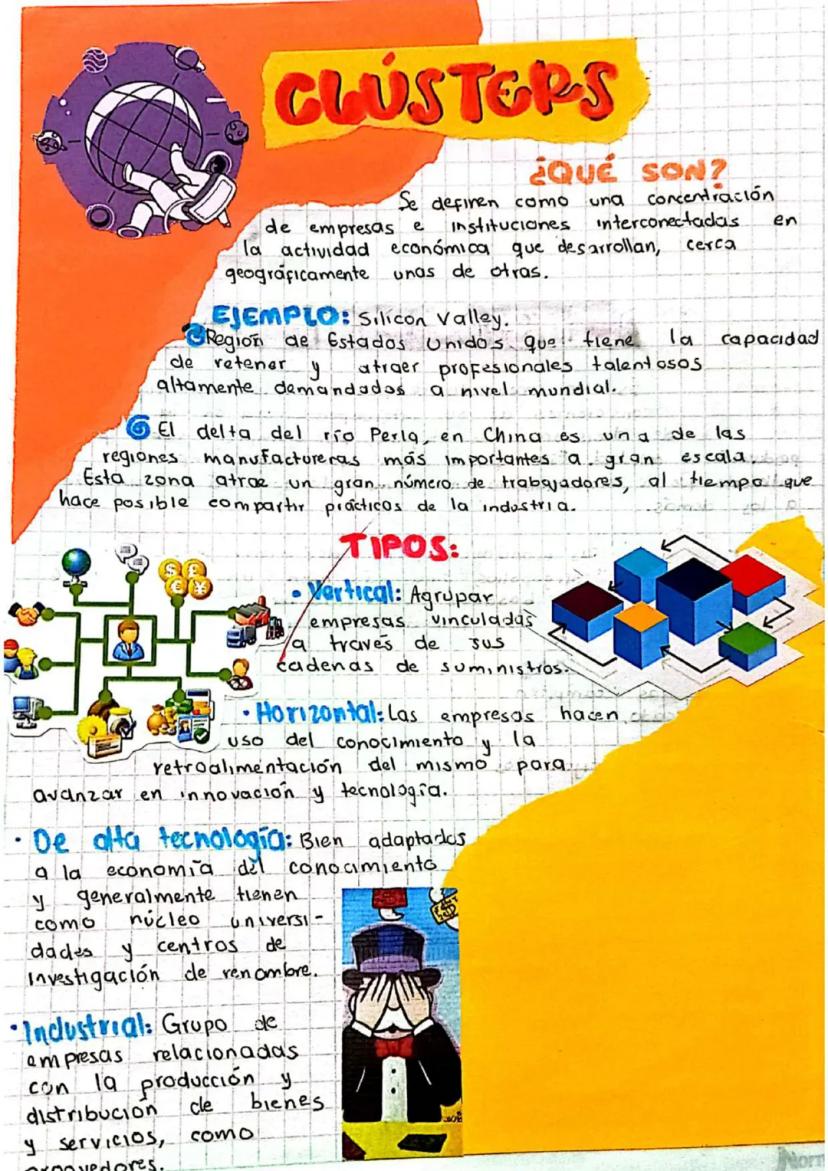 CLÚSTERS
¿QUÉ SON?
Se definen como una concentración
de empresas e instituciones interconectadas en
la actividad económica que desarrollan, cerca
geográficamente unas de otras.
EJEMPLO: Silicon Valley.
Región de Estados Unidos que tiene la capacidad
de retener y atraer profesionales talentosos
altamente demandados a nivel mundial.
El delta del río Perla, en China es una de las
regiones manufactureras más importantes a gran escala.
Esta zona atrae un gran número de trabajadores, al tiempo que
hace posible compartir prácticos de la industria.
TIPOS:
• Vertical: Agrupar
empresas vinculadas
a través de sus
cadenas de suministros.
• Horizontal: Las empresas hacen
uso del conocimiento y la
retroalimentación del mismo para
avanzar en innovación y tecnología.
• De alta tecnología: Bien adaptados
a la economía del conocimiento
y generalmente tienen
como núcleo universi-
dades y centros de
investigación de renombre.
• Industrial: Grupo de
empresas relacionadas
con la producción y
distribución de bienes
y servicios, como
proovedores.